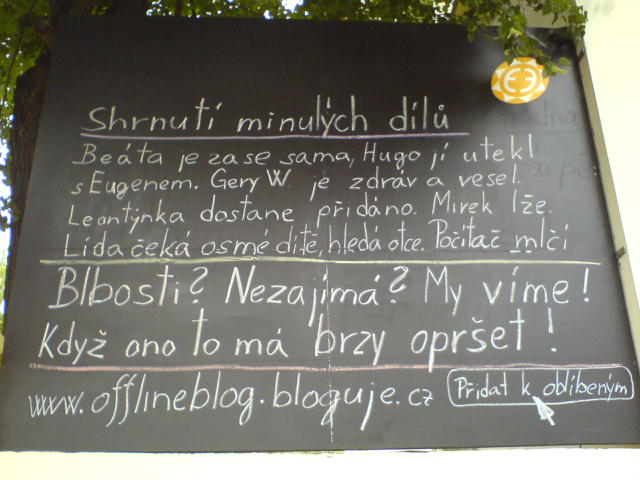 Shrnutí minulých dílů
Beáta je zase sama, Hugo jí utekl
s Eugenem. Gery W. je zdráv a vesel.
Leontýnka dostane přidáno. Mirek lže.
Lída čeká osmé dítě, hledá otce. Počítač mlčí
Blbosti? Nezajímá? My víme!
Když ono to má brzy opršet!
www.offlineblog.bloguje.cz
Přidat k oblíbeným